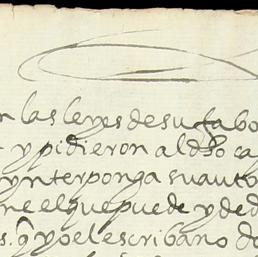 n las leyes de su fabo
y pidieron al dho ca
ynterponga su auto
ne el que puede y de d
s. q yo el escribano do